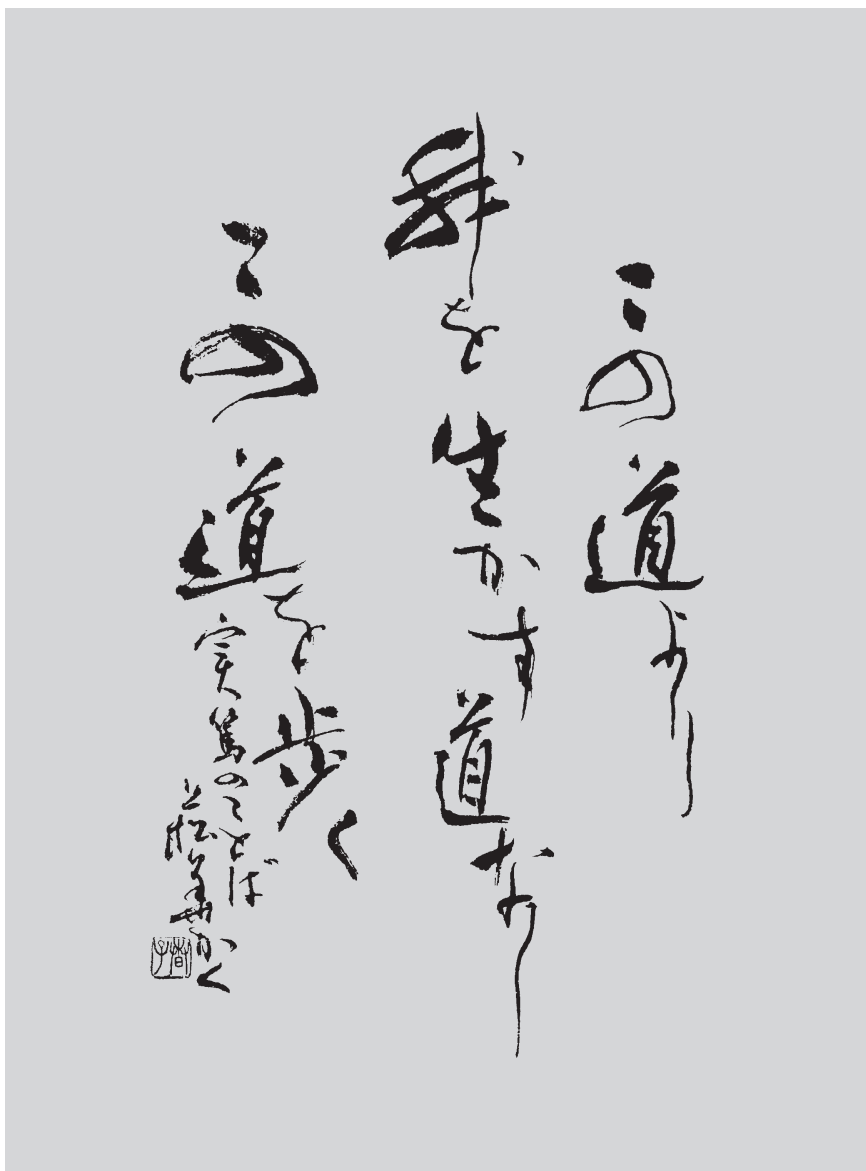 この道より
我を生かす道なし
この道を歩く
実篤のことば
かく